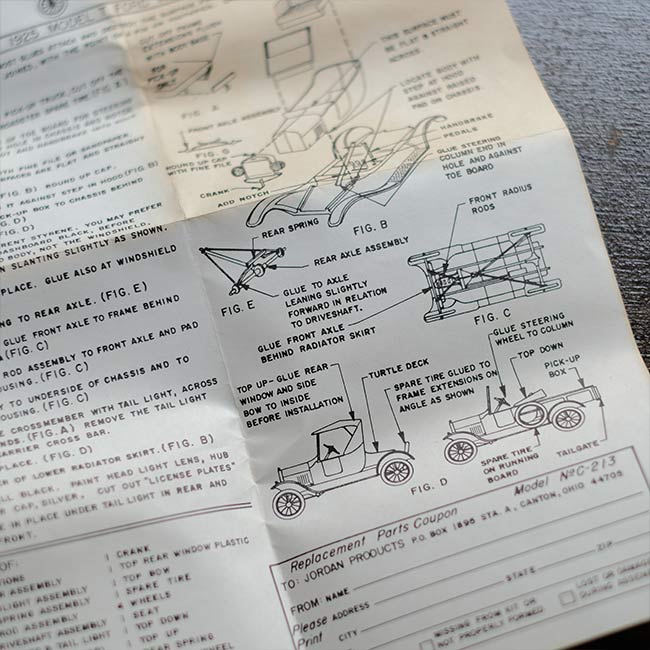 1925 MODEL T FORD
MOST GLUES ATTACK AND DESTROY THE SURFACE
JOINED, WITH THE POINT OF A PIN OR
PICK-UP TRUCK, CUT OFF THE
ROADSTER SPARE TIRE (FIG.
UP OF TOE BOARD FOR STEERING
HOLE IN CHASSIS AND MOTOR
WITH FINE FILE OR SANDPAPER.
SURFACES ARE FLAT AND STRAIGHT
(FIG. B) ROUND UP CAP.
IT AGAINST STEP IN HOOD (FIG. B)
PICK-UP BOX TO CHASSIS BEHIND
(FIG. D)
CLEAR STYRENE, YOU MAY PREFER
DASHBOARD BACK, BEFORE
TO BODY, NOT THE WINDSHIELD,
N SLANTING SLIGHTLY AS SHOWN.
PLACE. GLUE ALSO AT WINDSHIELD
NG TO REAR AXLE. (FIG. E)
GLUE FRONT AXLE TO FRAME BEHIND
(FIG. C)
ROD ASSEMBLY TO FRONT AXLE AND PAD
OUSING. (FIG. C)
Y TO UNDERSIDE OF CHASSIS AND TO
OUSING. (FIG. C)
E CROSSMEMBER WITH TAIL LIGHT, ACROSS
NDS. (FIG. A) REMOVE THE TAIL LIGHT
CARRIER CROSS BAR.
PLACE. (FIG. D)
R OF LOWER RADIATOR SKIRT. (FIG. B)
LL BLACK. PAINT HEAD LIGHT LENS, HUB
CAP, SILVER. CUT OUT "LICENSE PLATES"
E IN PLACE UNDER TAIL LIGHT IN REAR AND
FRONT.
CUT OFF FRAME
EXTENSIONS FLUSH
WITH BODY BASE
FOR
PICK-UP
ONLY
FIG. A
FRONT AXLE ASSEMBLY
FIG. G
ROUND UP CAP
WITH FINE FILE
CRANK
ADD NOTCH
THIS SURFACE MUST
BE FLAT & STRAIGHT
ACROSS
LOCATE BODY WITH
STEP AT HOOD
AGAINST RAISED
PAD ON CHASSIS.
HANDBRAKE
PEDALS
GLUE STEERING
COLUMN END IN
HOLE AND AGAINST
TOE BOARD
FIG. B
REAR SPRING
REAR AXLE ASSEMBLY
FIG. E
GLUE TO AXLE
LEANING SLIGHTLY
FORWARD IN RELATION
TO DRIVESHAFT.
FRONT RADIUS
RODS
GLUE FRONT AXLE
BEHIND RADIATOR SKIRT
FIG. C
TOP UP - GLUE REAR
WINDOW AND SIDE
BOW TO INSIDE
BEFORE INSTALLATION
TURTLE DECK
SPARE TIRE GLUED TO
FRAME EXTENSIONS ON
ANGLE AS SHOWN
GLUE STEERING
WHEEL TO COLUMN
TOP DOWN
PICK-UP
BOX
FIG. D
SPARE TIRE
ON RUNNING
BOARD
TAILGATE
OF:
TIONS
ASSEMBLY
LIGHT ASSEMBLY
SPRING ASSEMBLY
ROD ASSEMBLY
DRIVESHAFT ASSEMBLY
& TAIL LIGHT
1 CRANK
1 TOP REAR WINDOW PLASTIC
1 TOP BOW
1 SPARE TIRE
4 WHEELS
1 SEAT
1 TOP DOWN
1 TOP UP
1 REAR SPRING
Replacement Parts Coupon Model No C-213
TO: JORDAN PRODUCTS P.O. BOX 1896 STA. A, CANTON, OHIO 44705
FROM: NAME
Please ADDRESS STATE ZIP
Print CITY
MISSING FROM KIT OR
NOT PROPERLY FORMED
LOST OR DAMAGED
DURING ASSEMBLY